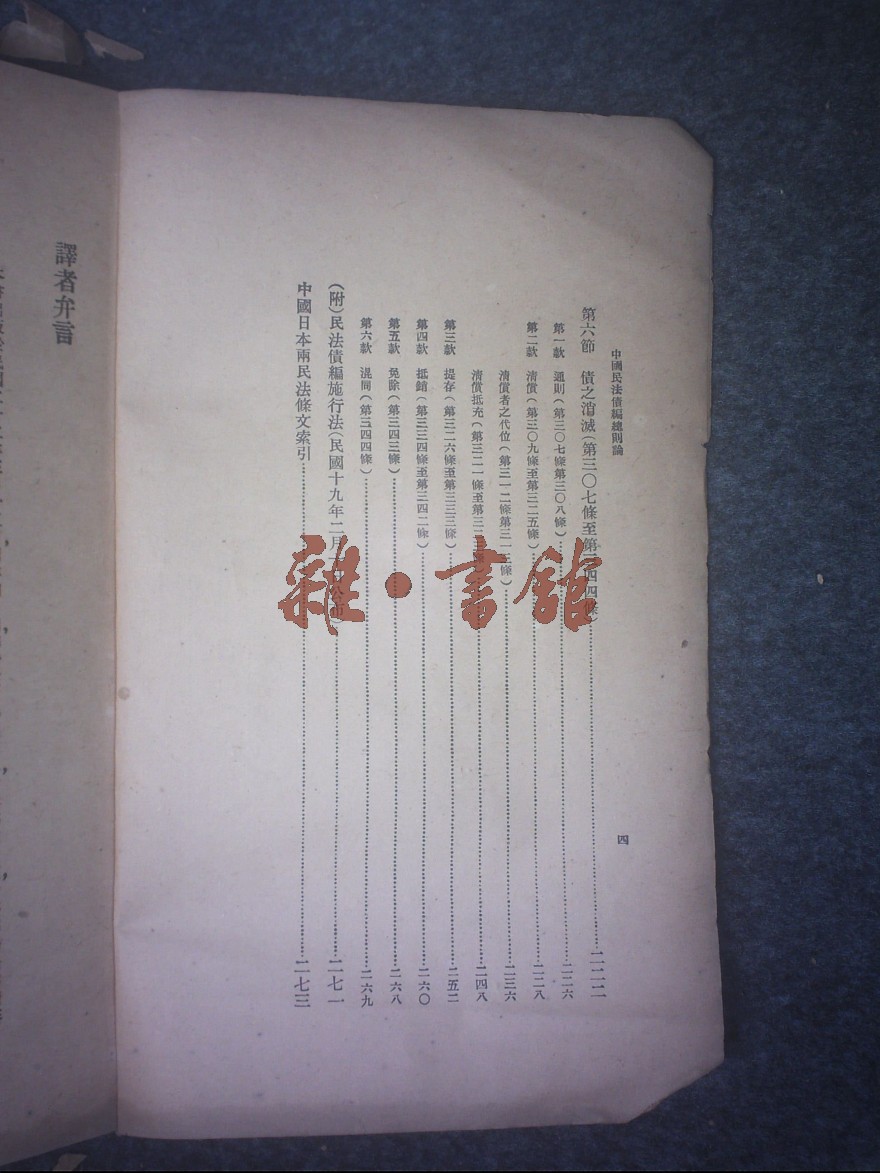 中國民法債編總則論
四
第六節 債之消滅(第三〇七條至第三四四條)……二二二
第一款 通則(第三〇七條第三〇八條)……二二六
第二款 清償(第三〇九條至第三二五條)……二二八
清償者之代位(第三一二條第三一三條)……二三六
清償抵充(第三二一條至第三二二條)……二四八
第三款 提存(第三二六條至第三三三條)……二五二
第四款 抵銷(第三三四條至第三四二條)……二六〇
第五款 免除(第三四三條)……二六八
第六款 混同(第三四四條)……二六九
(附)民法債編施行法(民國十九年二月十日公布)……二七一
中國日本兩民法條文索引……二七三
譯者弁言
雜·書館